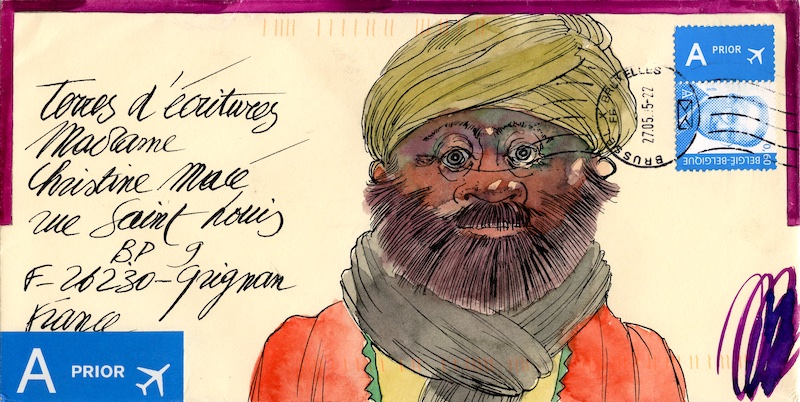 Terres d'écritures
Madame
Christine Macé
rue Saint Louis
B.P 9
F-26230-Grignan
France
A PRIOR
A PRIOR
BRUSSEL X BRUXELLES
27.05
5-22
BELGIË-BELGIQUE